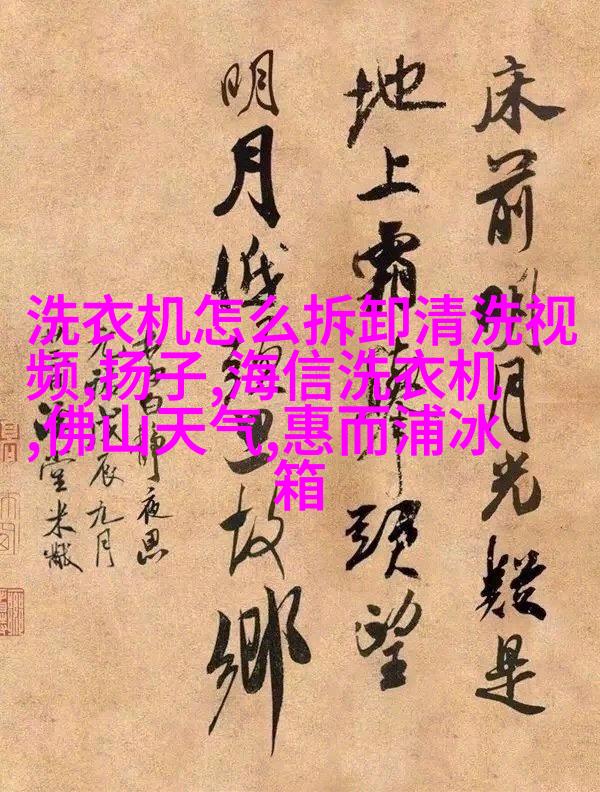 洗衣机怎么拆卸清洗视
频,扬子,海信洗衣机
,佛山天气,惠而浦冰
箱
床前明月光疑是
地上霜舉頭望
明月低頭思故鄉
白靜夜思
戊辰九月
堂米黻